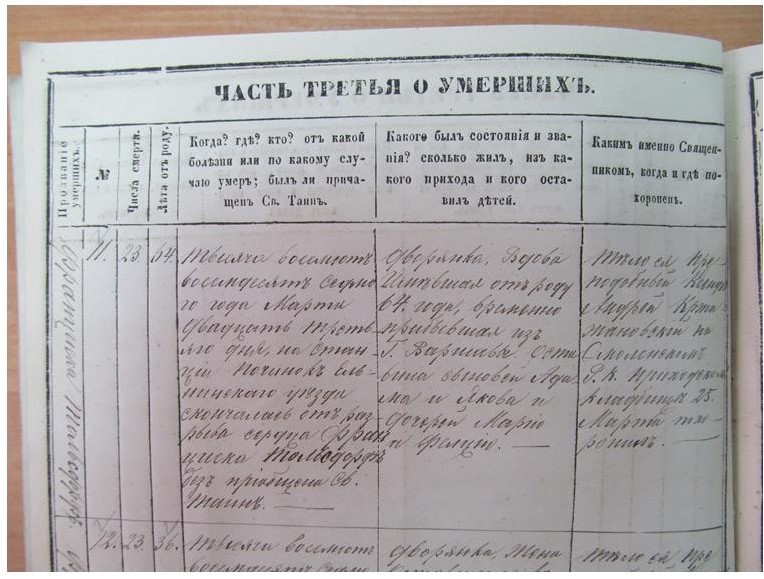 ЧАСТЬ ТРЕТЬЯ О УМЕРШИХЪ.
Прозваніе умершихъ.
№
Числа смерти.
Лѣта отъ роду.
Когда? гдѣ? кто? отъ какой
болѣзни или по какому слу-
чаю умеръ; былъ ли прича-
щенъ Св. Таинъ.
Какого былъ состоянія и зва-
нія? сколько жилъ, изъ ка-
кого прихода и кого оста-
вилъ дѣтей.
Какимъ именно Священ-
никомъ, когда и гдѣ по-
хороненъ.
Франциска
11.
23.
64.
Тысяча восемьсотъ
восемьдесятъ седьма-
го года Марта
двадцать треть-
яго дня, на стан-
ціи Починокъ Ель-
нинского уѣзда
скончалась отъ раз-
рыва сердца Фран
циска
безъ пріобщенія Св.
Таинъ.
Дворянка, Вдова
Имѣвшая отъ роду
64. года, временно
прибывшая изъ
Г. Варшавы. Оста-
вила сыновей Ада-
ма и Якова и
дочерей Марію
и Фелицію.
Тѣло ея пре-
подобный Ксендзъ
Андрей Кржи
жановскій на
Смоленскомъ
Р. К. приходскомъ
кладбищѣ 25.
Марта похо-
ронилъ.
12.
23.
36.
Тысяча восемьсотъ
Дворянка, Жена
Тѣло ея пре